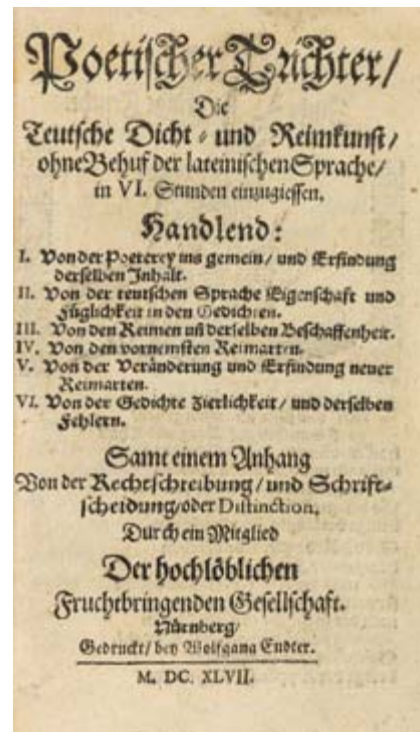 Poetischer Trichter/
Die
Teutsche Dicht- und Reimkunst/
ohne Behuf der lateinischen Sprache/
in VI. Stunden einzugiessen.
Handlend:
I. Von der Poeterey ins gemein/ und Erfindung
derselben Inhalt.
II. Von der teutschen Sprache Eigenschaft und
Füglichkeit in den Gedichten.
III. Von den Reimen uñ derselben Beschaffenheit.
IV. Von den vornemsten Reimarten.
V. Von der Veränderung und Erfindung neuer
Reimarten.
VI. Von der Gedichte Zierlichkeit/ und derselben
Fehlern.
Samt einem Anhang
Von der Rechtschreibung/ und Schrift-
scheidung/ oder Distinction.
Durch ein Mitglied
Der hochlöblichen
Fruchtbringenden Gesellschaft.
Nürnberg/
Gedruckt/ bey Wolfgang Endter.
M. DC. XLVII.